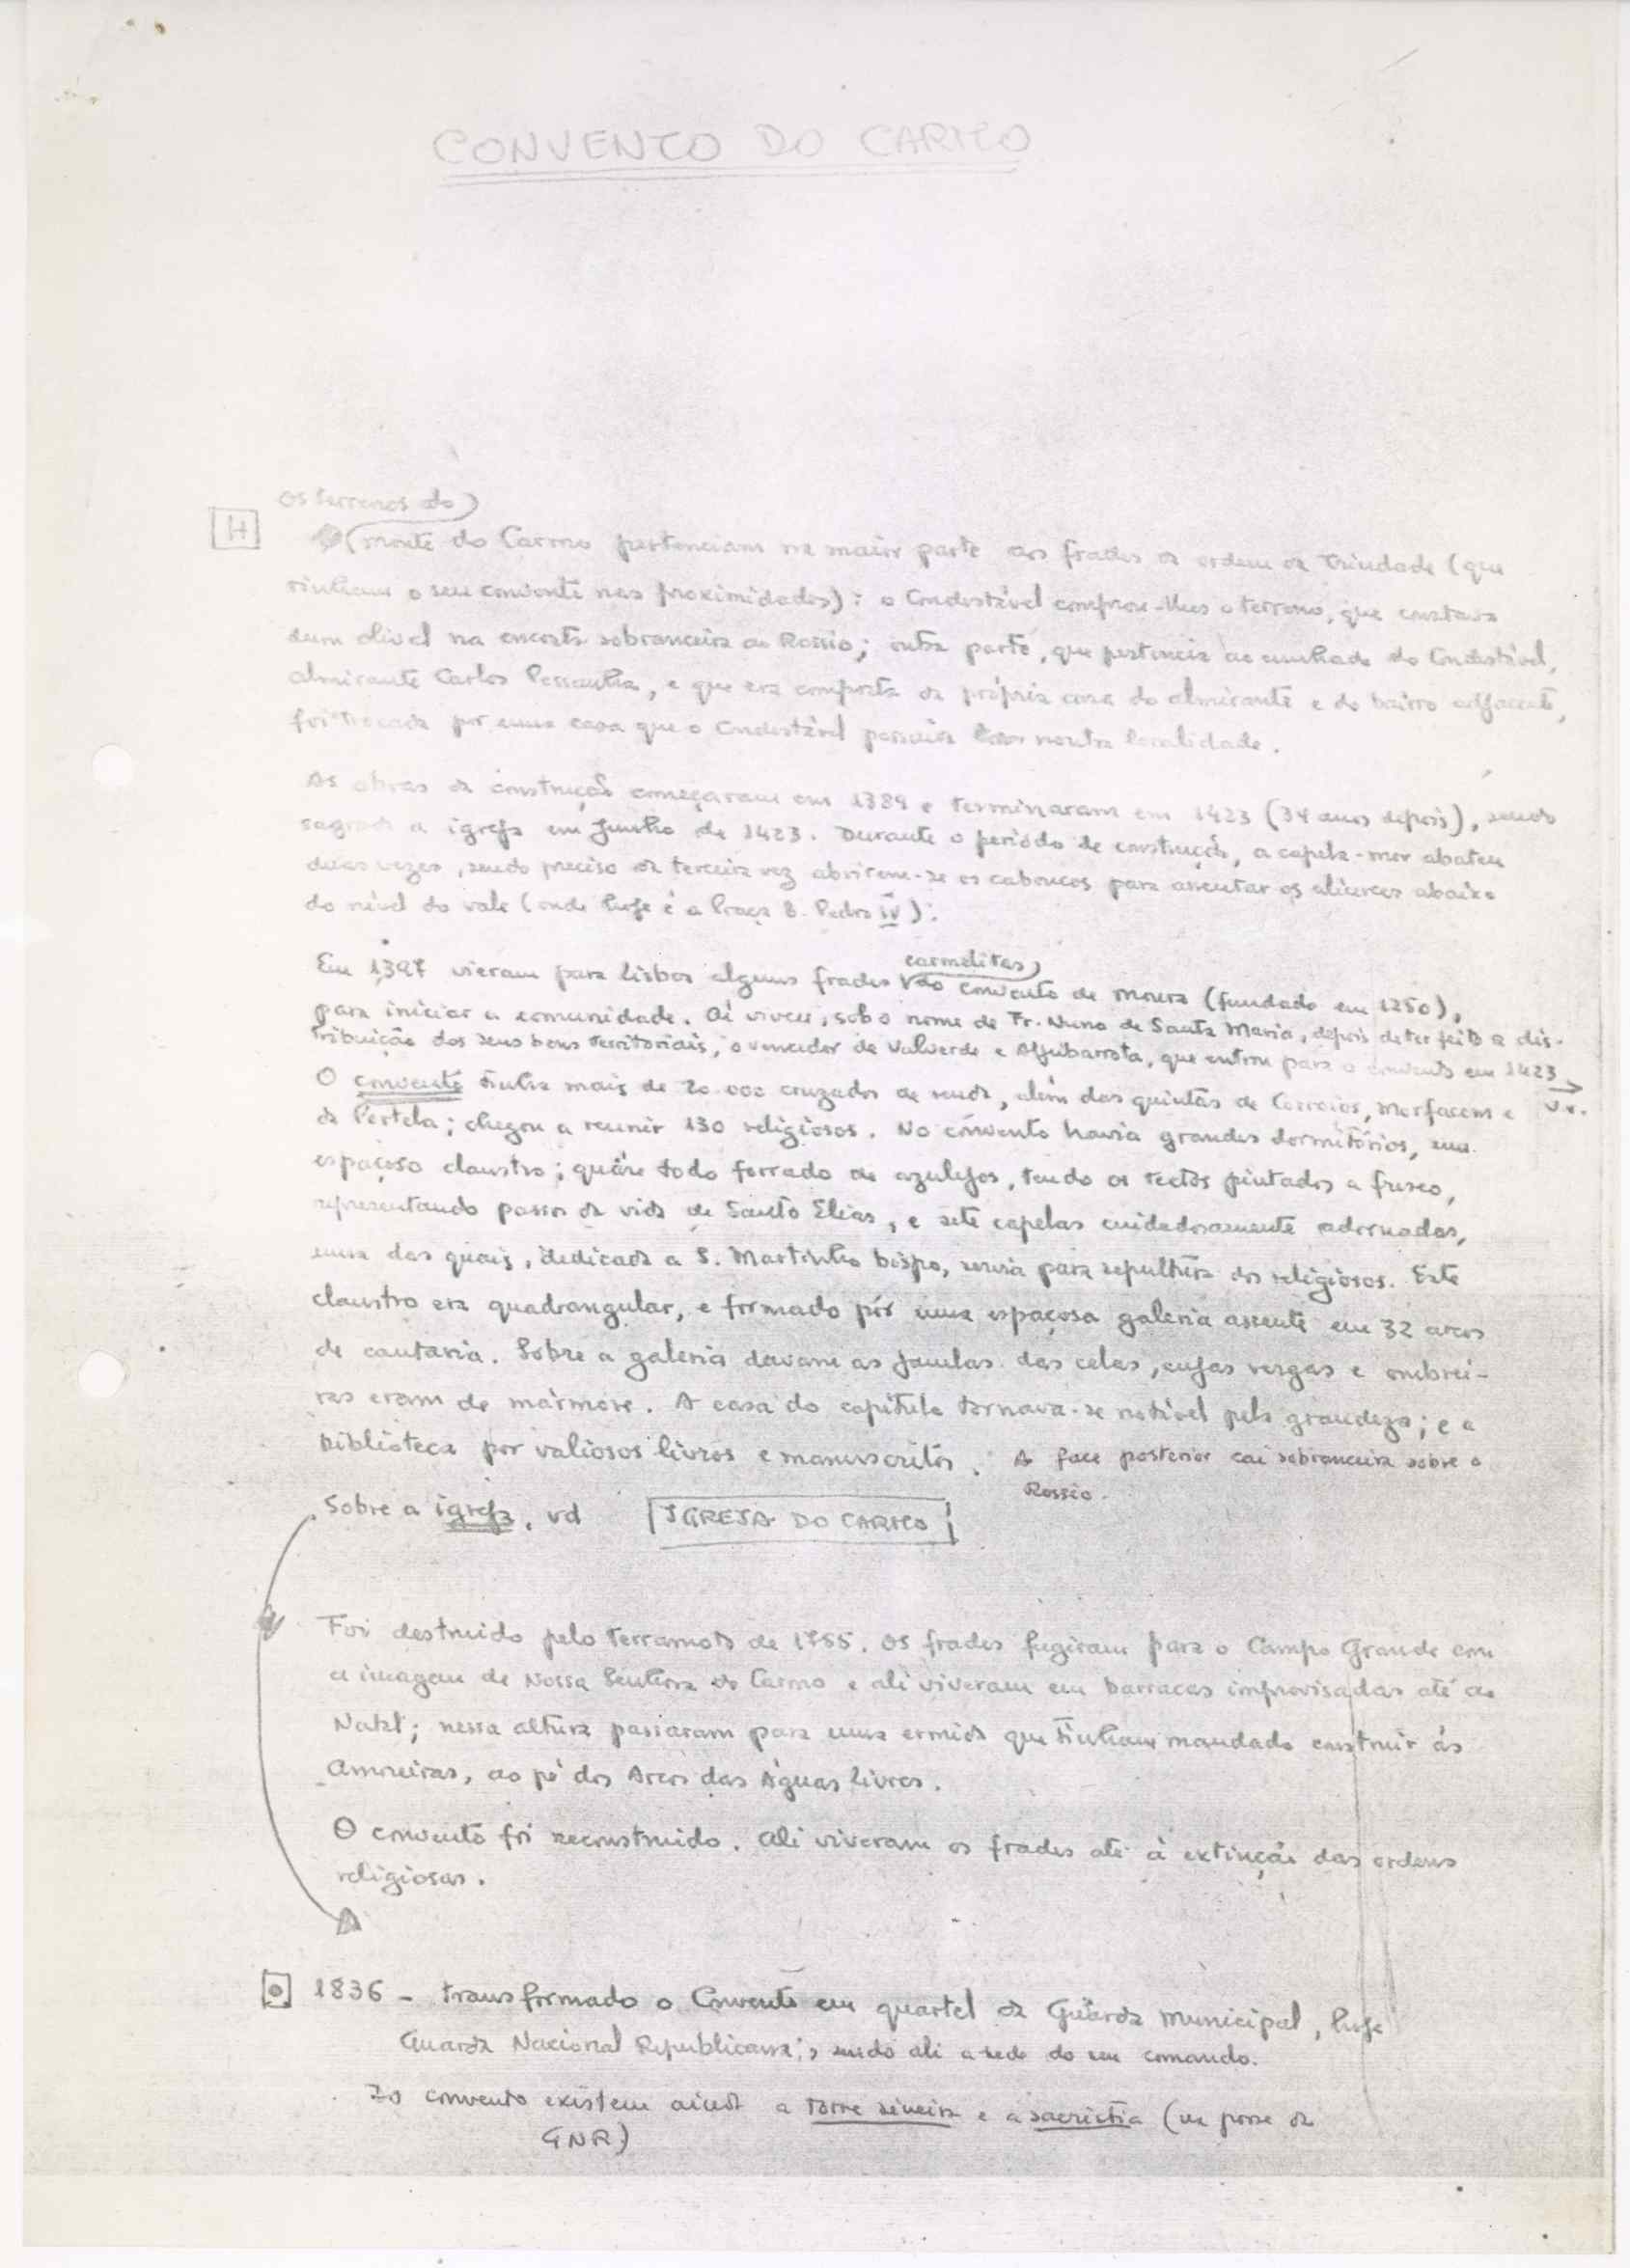 CONVENTO DO CARMO
Os terrenos do
H
monte do Carmo pertenciam na maior parte aos frades da ordem da Trindade (que
tinham o seu convento nas proximidades): o Condestável comprou-lhes o terreno, que constava
dum olival na encosta sobranceira ao Rossio; outra parte, que pertencia ao cunhado do Condestável,
almirante Carlos Pessanha, e que era composta da própria casa do almirante e do bairro adjacente,
foi trocada por uma casa que o Condestável possuía noutra localidade.
As obras da construção começaram em 1389 e terminaram em 1423 (34 anos depois), sendo
sagrada a igreja em Junho de 1423. Durante o período de construção, a capela-mor abateu
duas vezes, sendo preciso da terceira vez abrirem-se os caboucos para assentar os alicerces abaixo
do nível do vale (onde hoje é a Praça D. Pedro IV).
carmelitas
Em 1397 vieram para Lisboa alguns frades do convento de Moura (fundado em 1250),
para iniciar a comunidade. Aí viveu, sob o nome de Fr. Nuno de Santa Maria, depois de ter feito a dis-
tribuição dos seus bens territoriais, o vencedor de Valverde e Aljubarrota, que entrou para o convento em 1423
O convento tinha mais de 20.000 cruzados de renda, além das quintas de Corroios, Morfacem e v.v.
da Portela; chegou a reunir 130 religiosos. No convento havia grandes dormitórios, um
espaçoso claustro; quáse todo forrado de azulejos, tendo os tectos pintados a fresco,
representando passos da vida de Santo Elias, e sete capelas cuidadosamente adornadas,
uma das quais, dedicada a S. Martinho bispo, servia para sepultura dos religiosos. Este
claustro era quadrangular, e formado por uma espaçosa galeria assente em 32 arcos
de cantaria. Sobre a galeria davam as janelas das celas, cujas vergas e ombrei-
ras eram de mármore. A casa do capítulo tornava-se notável pela grandeza; e a
biblioteca por valiosos livros e manuscritos. A face posterior cai sobranceira sobre o
Rossio.
Sobre a igreja, vd IGREJA DO CARMO
Foi destruido pelo terramoto de 1755. Os frades fugiram para o Campo Grande com
a imagem de Nossa Senhora do Carmo e ali viveram em barracas improvisadas até ao
Natal; nessa altura passaram para uma ermida que tinham mandado construir às
Amoreiras, ao pé dos Arcos das Águas Livres.
O convento foi reconstruido. Ali viveram os frades até à extinção das ordens
religiosas.
1836 - transformado o Convento em quartel da Guarda Municipal, hoje
Guarda Nacional Republicana, sendo ali a sede do seu comando.
Do convento existem ainda a torre sineira e a sacristia (na posse da
GNR)